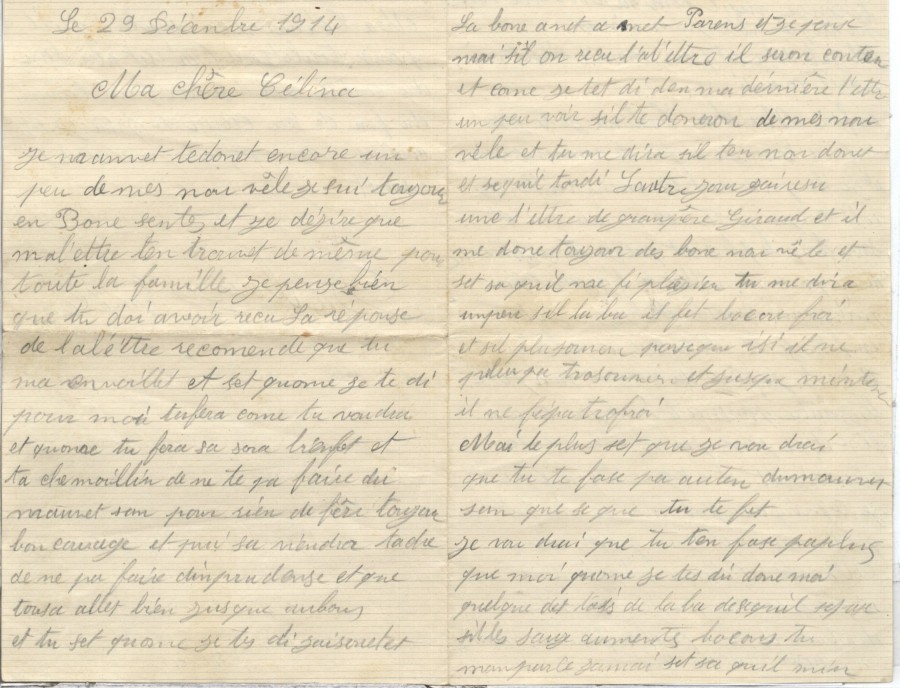 Le 29 Décenbre 1914
Ma chère Célina
Je manvet tedonet encore un
peu de mes nou vêle je sui toujour
en Bone sentez et je désire que
ma l'ettre ten trouvet de même pour
toute la famille je pense bien
que tu doi avoir recu la réponse
de la l'éttre recomendé que tu
ma envoillet et set quome je te di
pour moi tufera come tu voudra
et quome tu fera sa sora bienfet et
ta che de ne te pa faire du
mauvet san pour rién de fêre toujour
bon courage et puis sa viendra
de ne pa faire dinprudense et que
tousa allet bien jusque aubout
et tu set quome je tes di
La bone anet a met Parens et je pense
mai s'il on recu l'al'ettre il seron conten
et come je tet di den ma dérnière l'ettre
un peu voir sil te doneron de mes nou
vêle et tu me dira sil ten nou donet
et sequil tordi Lautre jour jairesu
une l'ettre de granpère Giraud et il
me done toujour des bone nou vêle et
set sa quil me fé plasien tu me dira
unpeu sil laba il fet bocou froi
et sil pleu paseque isi il ne
pleu pa trosouven et jusqua mintenen
il ne fé pa trofroi
Mai le plus set que je vou drai
que tu te fase pa auten dumauvet
san que se que tu te fet
je vou drai que tu ten fase paplus
que moi quome je tes di done moi
quelque de laba desequil sepase
sil les aumentez bocou tu
manparle jamai set sa quil